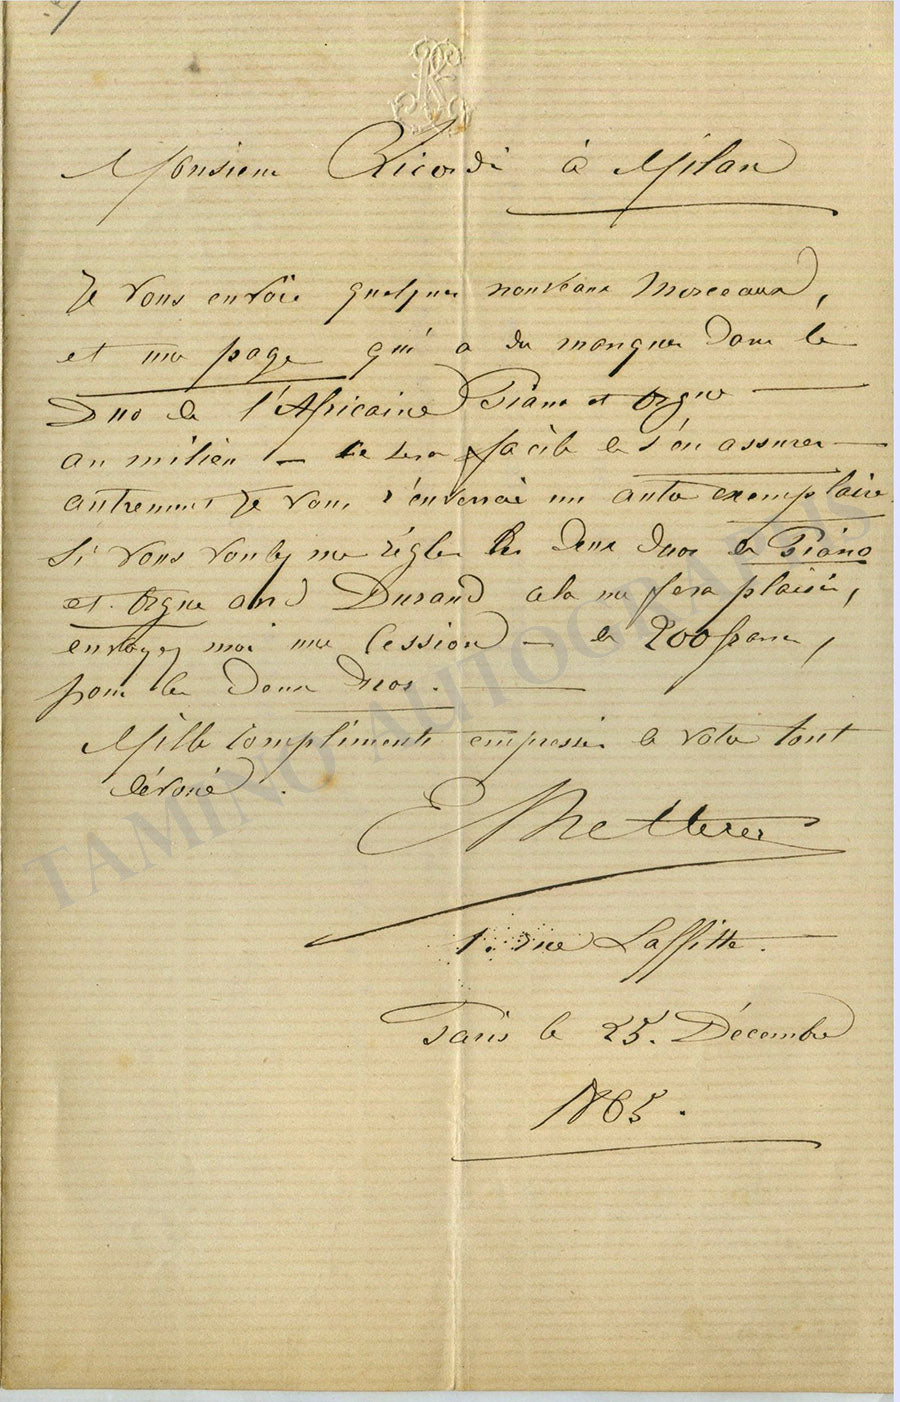 Monsieur Ricordi à Milan
Je vous envoie quelques nouveaux morceaux,
et une page qui a du manquer dans le
Duo de l'Africaine Piano et Orgue —
au milieu — ce sera facile de s'en assurer —
autrement Je vous r'enverrai un autre exemplaire.
Si vous voulez me régler les deux duos de Piano
et Orgue avec Durand cela me fera plaisir,
envoyez moi une Cession — de 200 francs,
pour les Deux Duos. —
Mille Compliments empressés de votre tout
dévoué.
E Ketterer
1. rue Laffitte. —
Paris le 25. Décembre
1865.
TAMINO AUTOGRAPHS